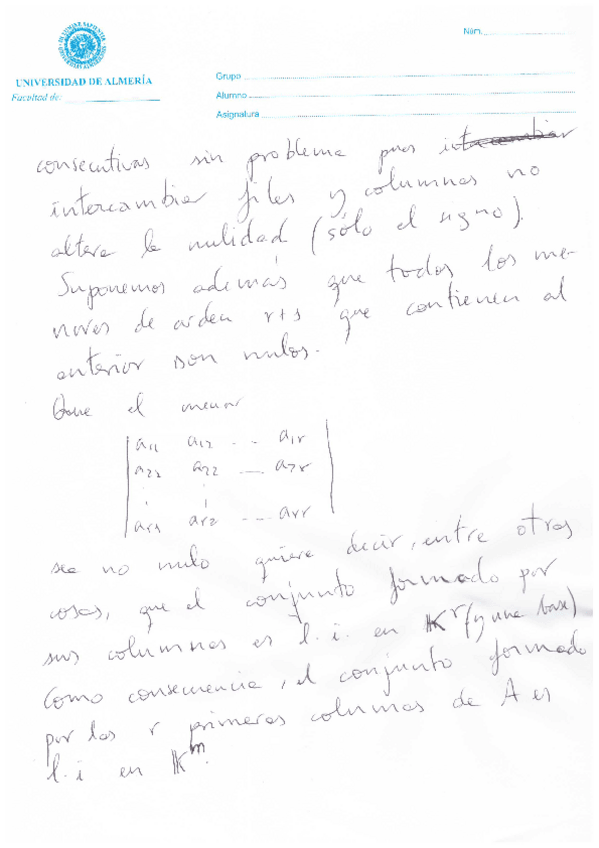 Núm.
UNIVERSIDAD DE ALMERÍA
Facultad de:
Grupo
Alumno
Asignatura
consecutivas sin problema pues intercambiar
intercambiar filas y columnas no
altera la nulidad (sólo el signo).
Suponemos además que todos los me-
nores de orden r+1 que contienen al
anterior son nulos.
Que el menor
a11 a12 ... a1r
a22 a22 ... a2r
⋮ ⋮
ar1 ar2 ... arr
sea no nulo quiere decir, entre otras
cosas, que el conjunto formado por
sus columnas es l.i. en 𝕂^r (y una base)
Como consecuencia, el conjunto formado
por las r primeras columnas de A es
l.i en 𝕂^m.